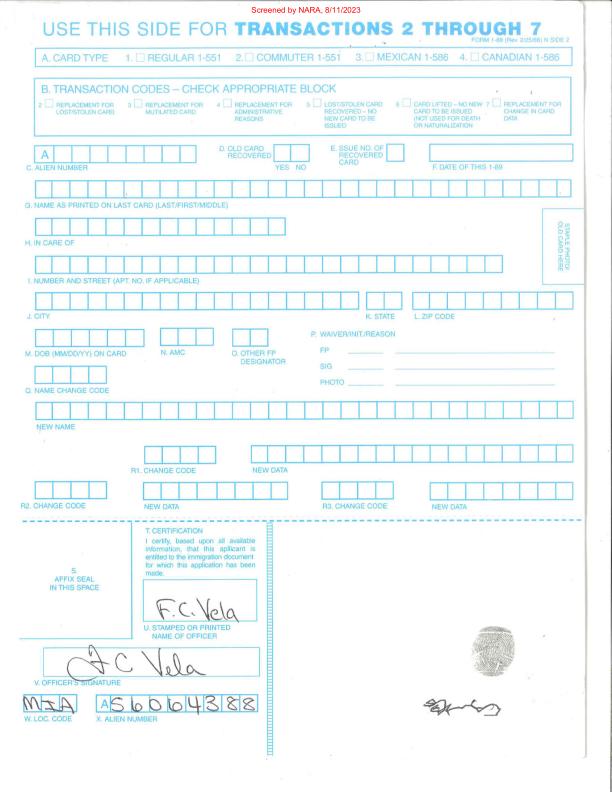 Screened by NARA, 8/11/2023
USE THIS SIDE FOR TRANSACTIONS 2 THROUGH 7
FORM 1-89 (Rev 2/25/88) N SIDE 2
A. CARD TYPE 1. REGULAR 1-551 2. COMMUTER 1-551 3. MEXICAN 1-586 4. CANADIAN 1-586
B. TRANSACTION CODES – CHECK APPROPRIATE BLOCK
2 REPLACEMENT FOR LOST/STOLEN CARD
3 REPLACEMENT FOR MUTILATED CARD
4 REPLACEMENT FOR ADMINISTRATIVE REASONS
5 LOST/STOLEN CARD RECOVERED – NO NEW CARD TO BE ISSUED
6 CARD LIFTED – NO NEW CARD TO BE ISSUED (NOT USED FOR DEATH OR NATURALIZATION
7 REPLACEMENT FOR CHANGE IN CARD DATA
A
C. ALIEN NUMBER
D. OLD CARD RECOVERED
YES NO
E. ISSUE NO. OF RECOVERED CARD
F. DATE OF THIS 1-89
G. NAME AS PRINTED ON LAST CARD (LAST/FIRST/MIDDLE)
STAPLE PHOTO/ OLD CARD HERE
H. IN CARE OF
I. NUMBER AND STREET (APT. NO. IF APPLICABLE)
J. CITY K. STATE L. ZIP CODE
M. DOB (MM/DD/YY) ON CARD
N. AMC
O. OTHER FP DESIGNATOR
P. WAIVER/INIT./REASON
FP
SIG
PHOTO
Q. NAME CHANGE CODE
NEW NAME
R1. CHANGE CODE NEW DATA
R2. CHANGE CODE NEW DATA R3. CHANGE CODE NEW DATA
S.
AFFIX SEAL
IN THIS SPACE
T. CERTIFICATION
I certify, based upon all available
information, that this applicant is
entitled to the immigration document
for which this application has been
made.
F.C. Vela
U. STAMPED OR PRINTED
NAME OF OFFICER
F C Vela
V. OFFICER'S SIGNATURE
MIA A56064388
W. LOC. CODE X. ALIEN NUMBER